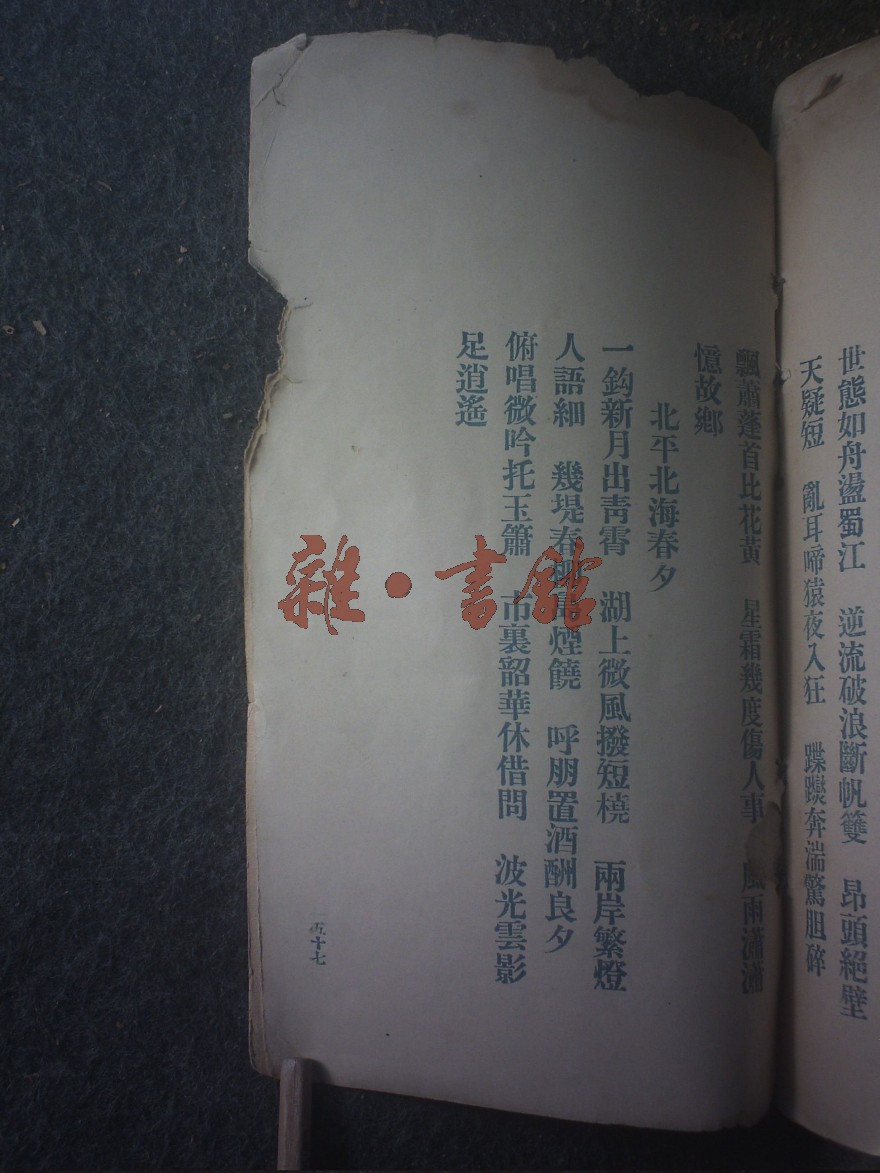 世態如舟盪蜀江　逆流破浪斷帆雙　昂頭絕壁
天疑短　亂耳啼猿夜入狂　蹀躞奔湍驚胆碎
飄蕭蓬首比花黃　星霜幾度傷人事　風雨瀟瀟
憶故鄉
北平北海春夕
一鈎新月出靑霄　湖上微風撥短橈　兩岸繁燈
人語細　幾堤春柳島煙饒　呼朋置酒酬良夕
俯唱微吟托玉簫　市裏韶華休借問　波光雲影
足逍遙
五十七
雜・書館